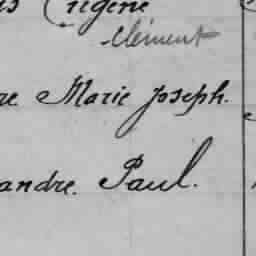 Eugène
Clément
re Marie Joseph.
andre. Paul.